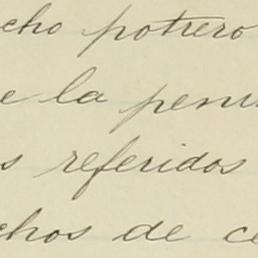 cho potrero
e la penin
s referidos
chos de ce